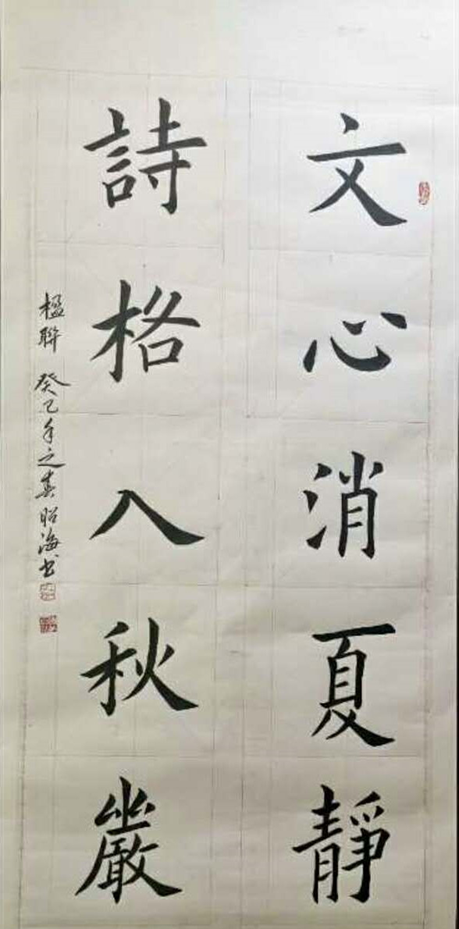 文心消夏靜
詩格入秋嚴
楹聯 癸巳年之春昭海书